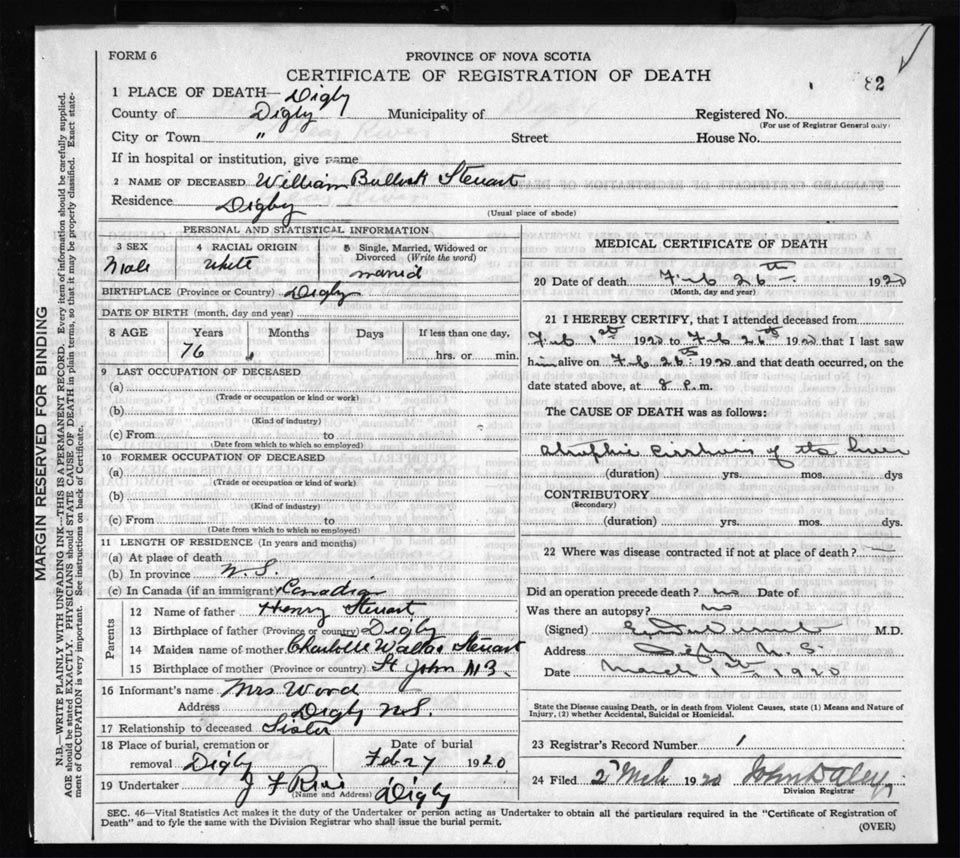 FORM 6
PROVINCE OF NOVA SCOTIA
82
CERTIFICATE OF REGISTRATION OF DEATH
1 PLACE OF DEATH— Digby
County of Digby Municipality of Registered No.
(For use of Registrar General only)
City or Town " Street House No.
If in hospital or institution, give name
2 NAME OF DECEASED William Stewart
Residence Digby
(Usual place of abode)
PERSONAL AND STATISTICAL INFORMATION
3 SEX 4 RACIAL ORIGIN 5 Single, Married, Widowed or
Divorced (Write the word)
Male White married
BIRTHPLACE (Province or Country) Digby
DATE OF BIRTH (month, day and year)
8 AGE Years Months Days If less than one day,
76 hrs. or min.
9 LAST OCCUPATION OF DECEASED
(a)
(Trade or occupation or kind or work)
(b)
(Kind of industry)
(c) From to
(Date from which to which so employed)
10 FORMER OCCUPATION OF DECEASED
(a)
(Trade or occupation or kind of work)
(b)
(Kind of industry)
(c) From to
(Date from which to which so employed)
11 LENGTH OF RESIDENCE (In years and months)
(a) At place of death
(b) In province N.S.
(c) In Canada (if an immigrant) Canadian
Parents
12 Name of father Henry Stewart
13 Birthplace of father (Province or country) Digby
14 Maiden name of mother Charlotte Stewart
15 Birthplace of mother (Province or country) St John N B.
16 Informant's name Mrs Word
Address Digby N.S.
17 Relationship to deceased Sister
18 Place of burial, cremation or Date of burial
removal Digby Feb 27 1920
19 Undertaker J F Rice Digby
(Name and Address)
MEDICAL CERTIFICATE OF DEATH
20 Date of death Feb 26th 1920
(Month, day and year)
21 I HEREBY CERTIFY, that I attended deceased from
Feb 1st 1920 to Feb 26th 1920 that I last saw
him alive on Feb 26th 1920 and that death occurred, on the
date stated above, at 8 P.m.
The CAUSE OF DEATH was as follows:
Atrophic Cirrhosis of the liver
(duration) yrs. mos. dys
CONTRIBUTORY
(Secondary)
(duration) yrs. mos. dys.
22 Where was disease contracted if not at place of death?
Did an operation precede death? no Date of
Was there an autopsy? no
(Signed) M.D.
Address Digby N.S.
Date March 1st 1920
State the Disease causing Death, or in death from Violent Causes, state (1) Means and Nature of
Injury, (2) whether Accidental, Suicidal or Homicidal.
23 Registrar's Record Number 1
24 Filed 2nd Mch 1920 John Daley,
Division Registrar
SEC. 46—Vital Statistics Act makes it the duty of the Undertaker or person acting as Undertaker to obtain all the particulars required in the "Certificate of Registration of
Death" and to fyle the same with the Division Registrar who shall issue the burial permit.
(OVER)
MARGIN RESERVED FOR BINDING
N.B.—WRITE PLAINLY, WITH UNFADING INK—THIS IS A PERMANENT RECORD. Every item of information should be carefully supplied.
AGE should be stated EXACTLY. PHYSICIANS should STATE CAUSE OF DEATH in plain terms, so that it may be properly classified. Exact state-
ment of OCCUPATION is very important. See instructions on back of Certificate.